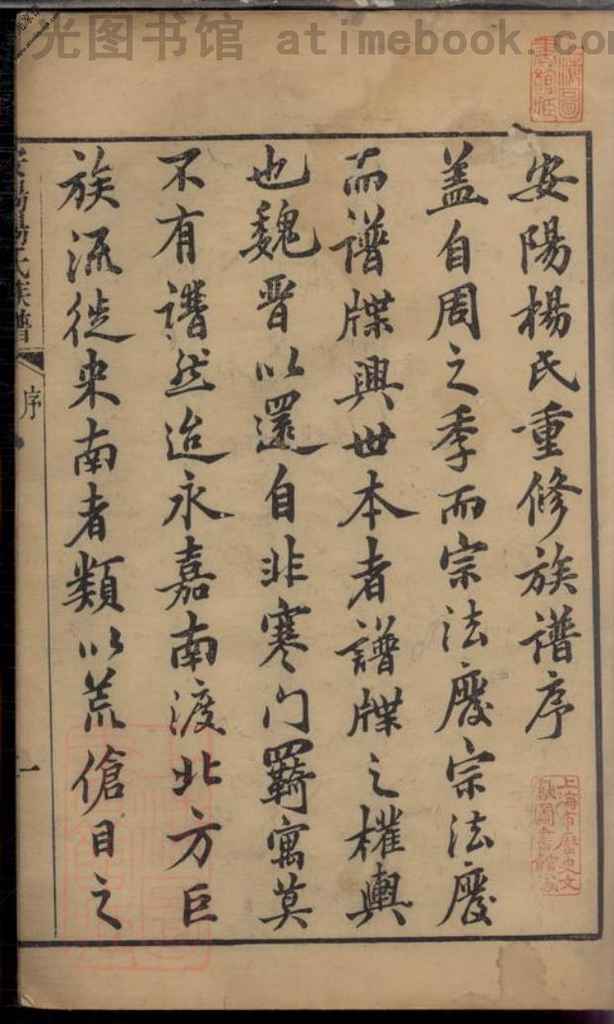 光图书馆 atimebook.com
安陽楊氏重修族譜序
蓋自周之季而宗法廢宗法廢
而譜牒興世本者譜牒之權輿
也魏晉以還自非寒门羁寓莫
不有譜然迨永嘉南渡北方巨
族流徙来南者類以荒傖目之
安陽楊氏族譜
序
一
上海市歷史文
獻圖書館藏